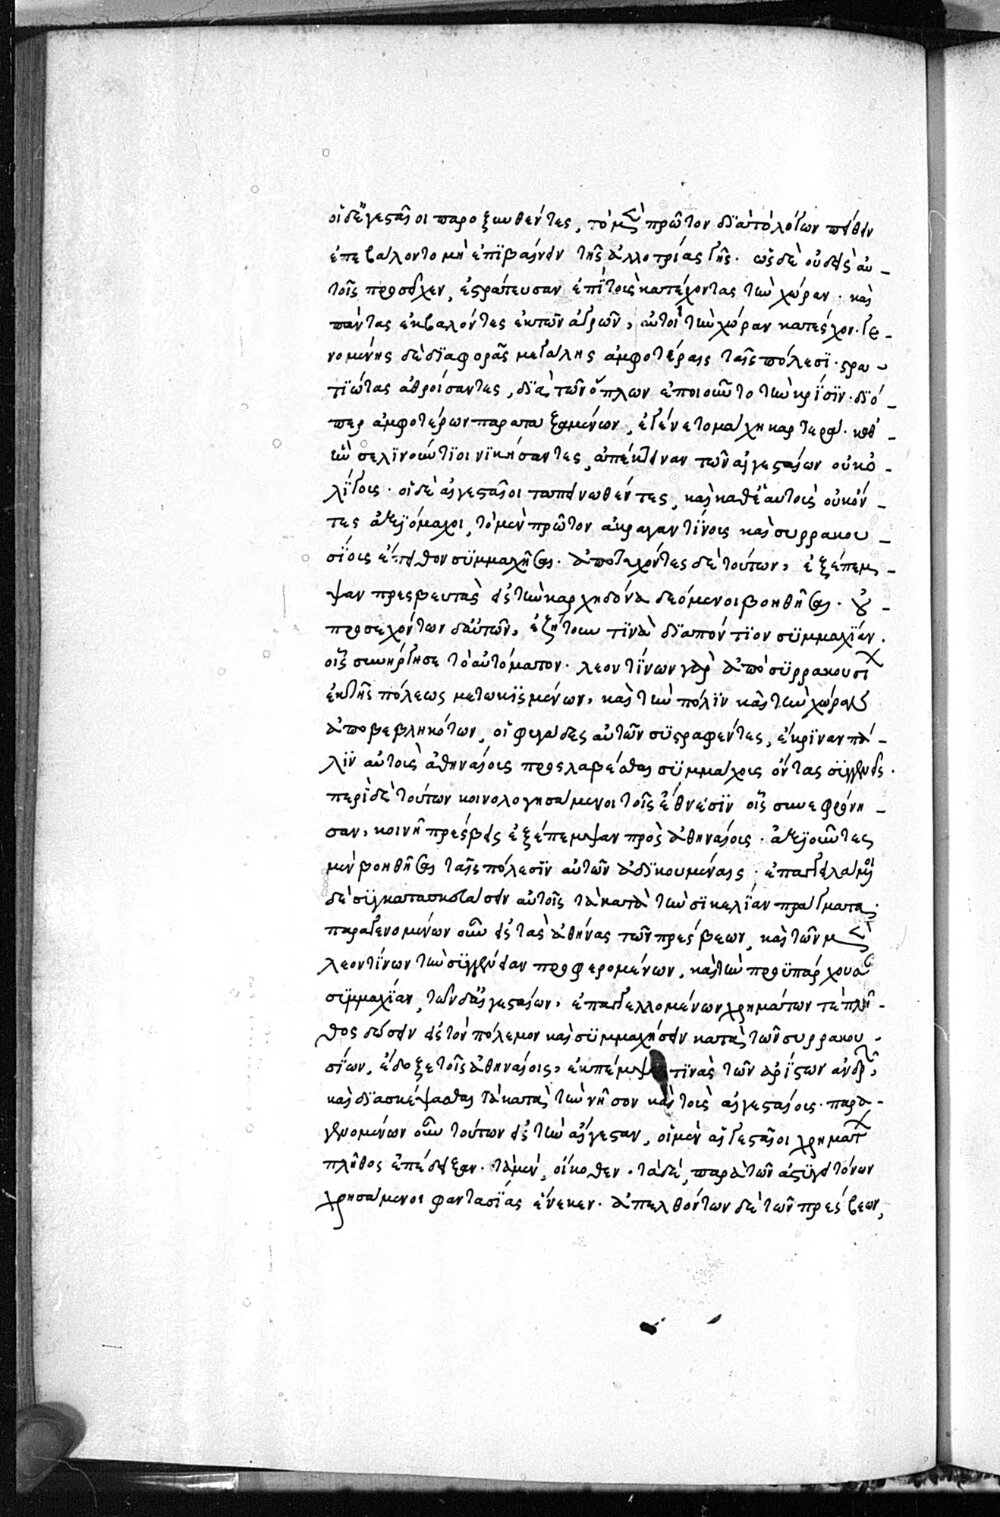 οἱ δ᾽ ἐγεσταῖοι παροξυνθέντες, τὸ μὲν πρῶτον διὰ τῶν λόγων πείθειν
ἐπεβάλοντο μὴ ἐπιβαίνειν τῆς ἀλλοτρίας γῆς. ὡς δὲ οὐδεὶς αὐ-
τοῖς προσεῖχεν, ἐστράτευσαν ἐπὶ τοὺς κατέχοντας τὴν χώραν. καὶ
πάντας ἐκβαλόντες ἐκ τῶν ἀγρῶν, αὐτοὶ τὴν χώραν κατέσχον. γε-
νομένης δὲ διαφορᾶς μεγάλης ἀμφοτέραις ταῖς πόλεσι. στρα-
τιώτας ἀθροίσαντες, διὰ τῶν ὅπλων ἐποιοῦντο τὴν κρίσιν. διό-
περ ἀμφοτέρων παραταξαμένων, ἐγένετο μάχη καρτερά. καθ᾽
ἣν σελινούντιοι νικήσαντες, ἀπέκτειναν τῶν αἰγεσταίων οὐκ ὀ-
λίγους. οἱ δὲ αἰγεσταῖοι ταπεινωθέντες, καὶ καθ᾽ ἑαυτοὺς οὐκ ὄν-
τες ἀξιόμαχοι, τὸ μὲν πρῶτον ἀκραγαντίνους καὶ συρρακου-
σίους ἔπειθον συμμαχῆσαι. ἀποτυχόντες δὲ τούτων, ἐξέπεμ-
ψαν πρεσβευτὰς εἰς τὴν καρχηδόνα δεόμενοι βοηθῆσαι. οὐ
προσεχόντων δ᾽ αὐτῶν, ἐζήτουν τινὰ διαπόντιον συμμαχίαν.
οἷς συνήργησε τὸ αὐτόματον. λεοντίνων γὰρ ὑπὸ συρρακουσί
ἐκ τῆς πόλεως μετωκισμένων, καὶ τὴν πόλιν καὶ τὴν χώραν
ἀποβεβληκότων, οἱ φυγάδες αὐτῶν συστραφέντες, ἔκριναν πά-
λιν αὐτοὺς ἀθηναίους προσλαβέσθαι συμμάχους ὄντας συγγενεῖς.
περὶ δὲ τούτων κοινολογησάμενοι τοῖς ἔθνεσιν οἷς συνεφρόνη-
σαν, κοινῇ πρέσβεις ἐξέπεμψαν πρὸς ἀθηναίους. ἀξιοῦντες
μὲν βοηθῆσαι ταῖς πόλεσιν αὐτῶν ἀδικουμέναις. ἐπαγγελλόμενοι
δὲ συγκατασκευάσειν αὐτοῖς τὰ κατὰ τὴν σικελίαν πράγματα.
παραγενομένων οὖν εἰς τὰς ἀθήνας τῶν πρέσβεων, καὶ τῶν μὲν
λεοντίνων τὴν συγγένειαν προφερομένων, καὶ τὴν προϋπάρχουσαν
συμμαχίαν, τῶν δ᾽ αἰγεσταίων, ἐπαγγελλομένων χρημάτων τε πλῆ-
θος δώσειν εἰς τὸν πόλεμον καὶ συμμαχήσειν κατὰ τῶν συρρακου-
σίων, ἔδοξε τοῖς ἀθηναίοις, ἐκπέμψαι τινὰς τῶν ἀρίστων ἀνδρῶν,
καὶ διασκέψασθαι τὰ κατὰ τὴν νῆσον καὶ τοὺς αἰγεσταίους. παρα-
γενομένων οὖν τούτων εἰς τὴν αἴγεσταν, οἱ μὲν αἰγεσταῖοι χρημάτ
πλῆθος ἐπέδειξαν. τὰ μὲν, οἴκοθεν. τὰ δὲ, παρὰ τῶν ἀστυγειτόνων
χρησάμενοι φαντασίας ἕνεκεν. ἀπελθόντων δὲ τῶν πρέσβεων,